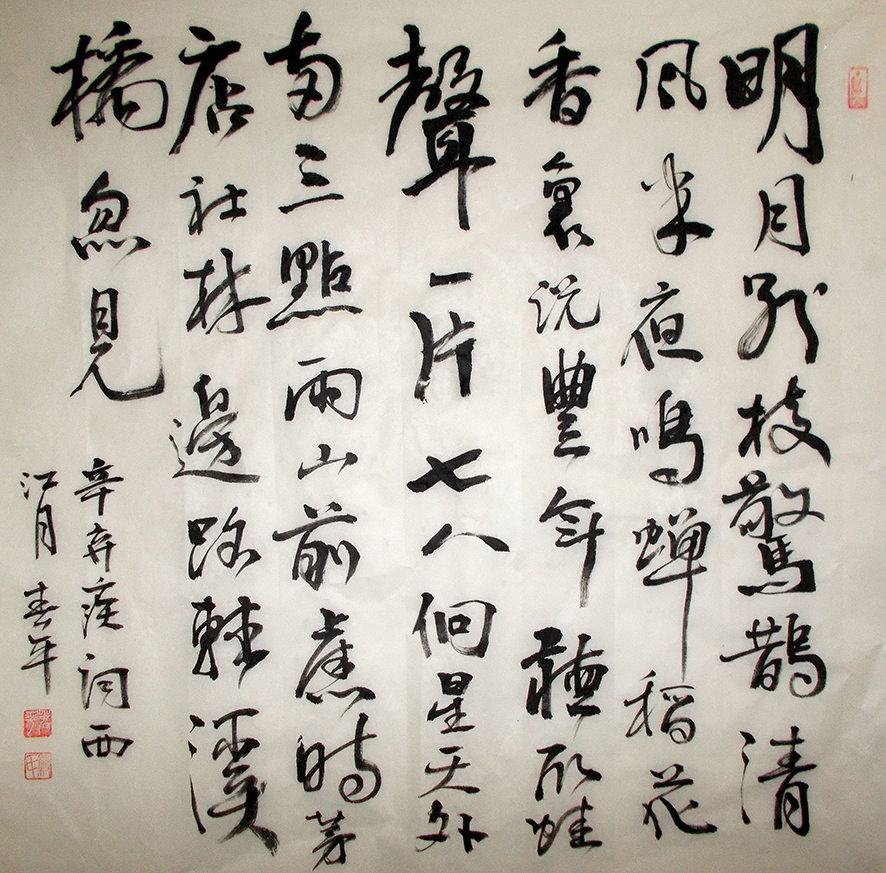 明月别枝驚鵲清
風半夜鳴蟬稻花
香裏说豐年聽取蛙
聲一片七八個星天外
两三點雨山前舊時茅
店社林邊路轉溪
橋忽見
辛弃疾词西
江月春年